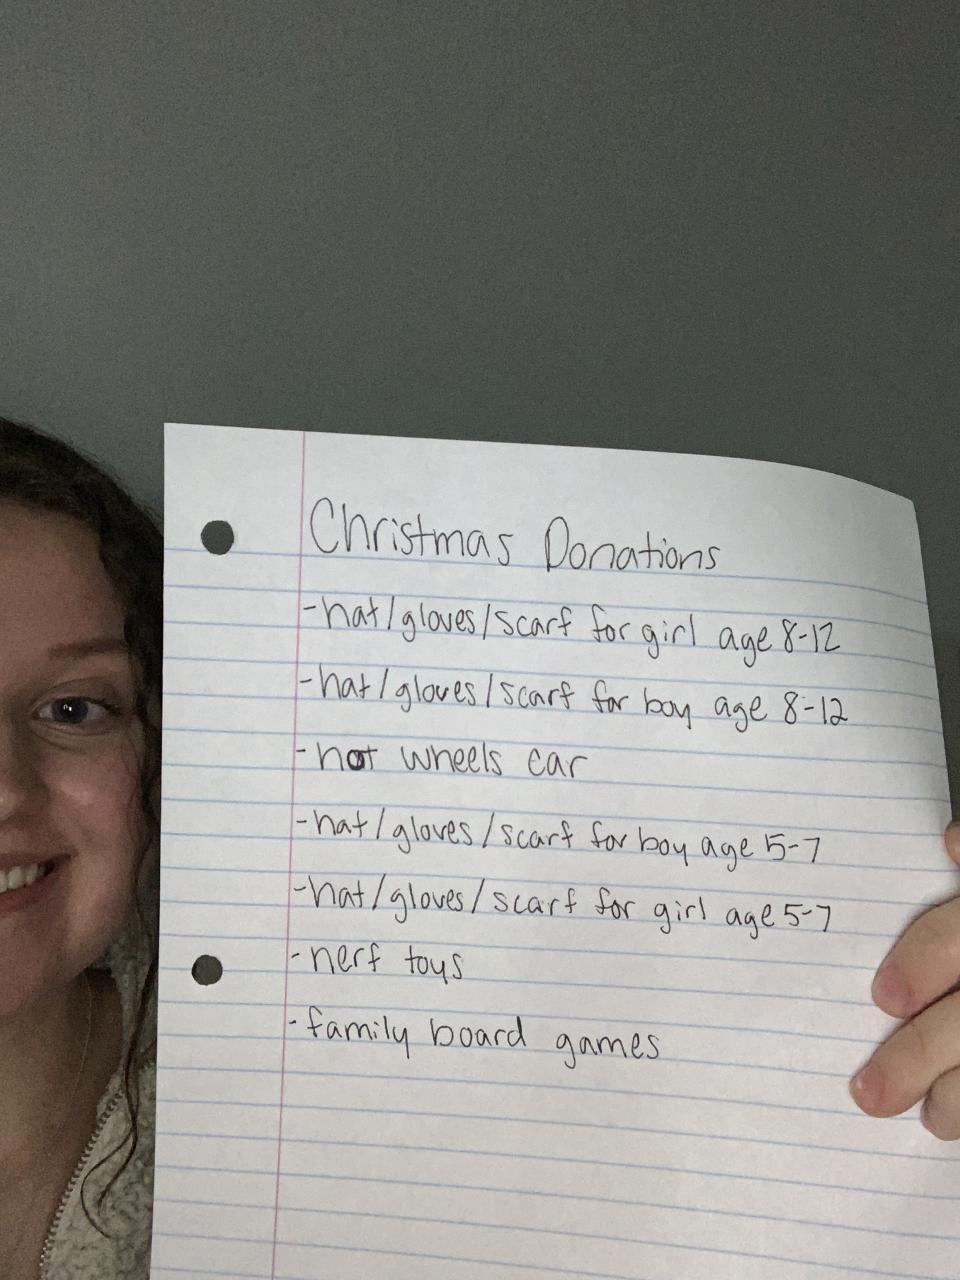 Christmas Donations
-hat/gloves/scarf for girl age 8-12
-hat/gloves/scarf for boy age 8-12
-hot wheels car
-hat/gloves/scarf for boy age 5-7
-hat/gloves/scarf for girl age 5-7
-nerf toys
-family board games